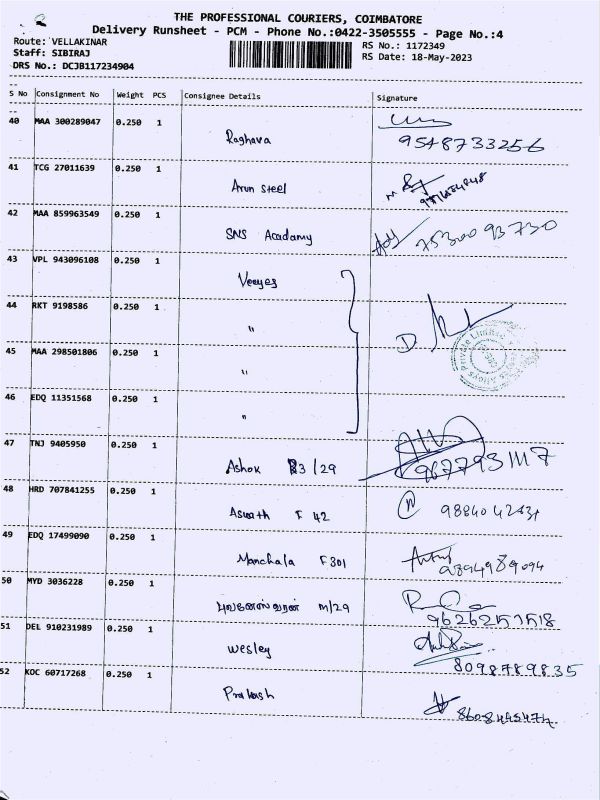 THE PROFESSIONAL COURIERS, COIMBATORE
Delivery Runsheet - PCM - Phone No.:0422-3505555 - Page No.:4
Route: VELLAKINAR
RS No.: 1172349
Staff: SIBIRAJ
RS Date: 18-May-2023
DRS No.: DCJB117234904
S No Consignment No Weight PCS Consignee Details Signature
40 MAA 300289047 0.250 1
Raghava 9548733256
41 TCG 27011639 0.250 1
Arun steel
42 MAA 859963549 0.250 1
SNS Acadamy 75300 93730
43 VPL 943096108 0.250 1
Veeyes
44 RKT 9198586 0.250 1
"
45 MAA 298501806 0.250 1
"
46 EDQ 11351568 0.250 1
"
47 TNJ 9405950 0.250 1
Ashok B3/29
48 HRD 707841255 0.250 1
Aswath F 42
49 EDQ 17499090 0.250 1
Manchala F301 9894989094
50 MYD 3036228 0.250 1
M/29
51 DEL 910231989 0.250 1
Wesley 8098789835
52 KOC 60717268 0.250 1
Prakash